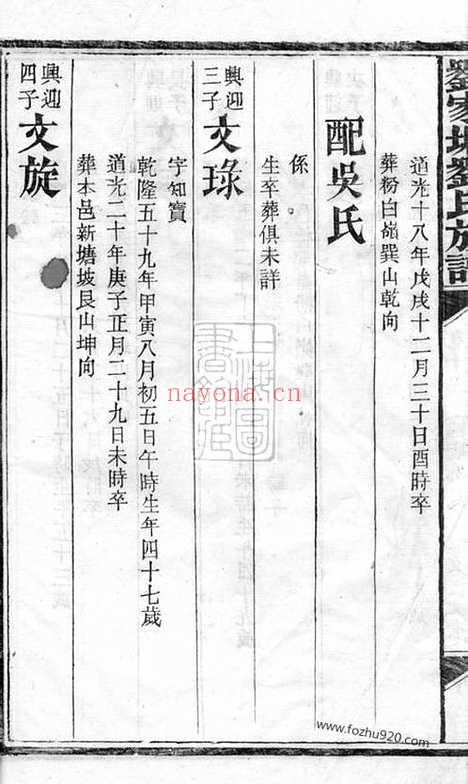 劉家塅劉氏族譜
道光十八年戊戌十二月三十日酉時卒
葬粉白嶺巽山乾向
配吳氏
係
生卒葬俱未詳
興迎
三子
文琭
字知寶
乾隆五十九年甲寅八月初五日午時生年四十七歲
道光二十年庚子正月二十九日未時卒
葬本邑新塘坡艮山坤向
興迎
四子
文旋
nayona.cn
www.fozhu920.com